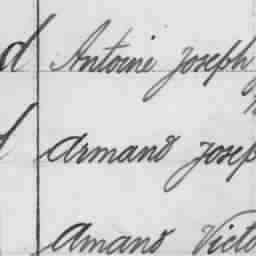 d Antoine Joseph
d Armand Josep
Amand Victo